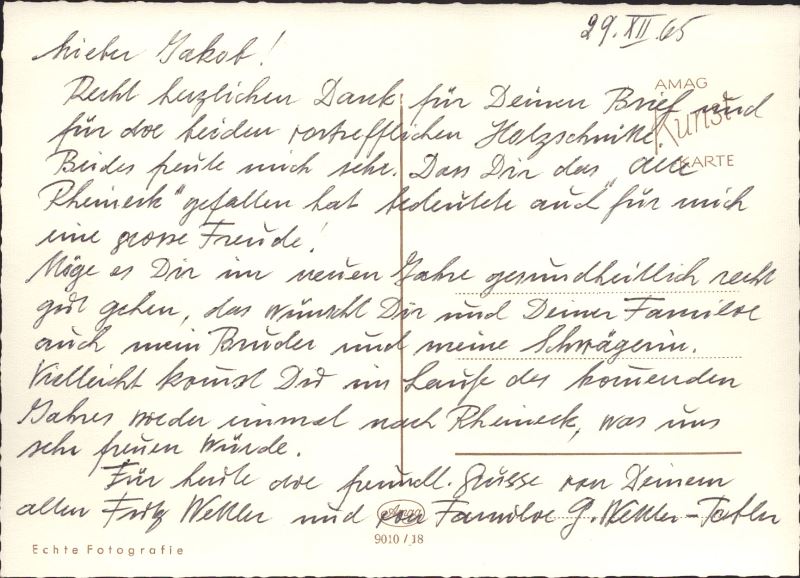 29. XII. 65
Lieber Jakob!
Recht herzlichen Dank für Deinen Brief und
für die beiden vortrefflichen Holzschnitte.
Beides freute mich sehr. Dass Dir das „alte
Rheineck" gefallen hat bedeutete auch für mich
eine grosse Freude!
Möge es Dir im neuen Jahre gesundheitlich recht
gut gehen, das wünscht Dir und Deiner Familie
auch mein Bruder und meine Schwägerin.
Vielleicht komst Du im Laufe des komenden
Jahres wieder einmal nach Rheineck, was uns
sehr freuen würde.
Für heute die freundl. Grüsse von Deinem
alten Fritz Wettler und von Familie G. Wettler-Tobler
AMAG
Kunst
KARTE
Amag
9010/18
Echte Fotografie